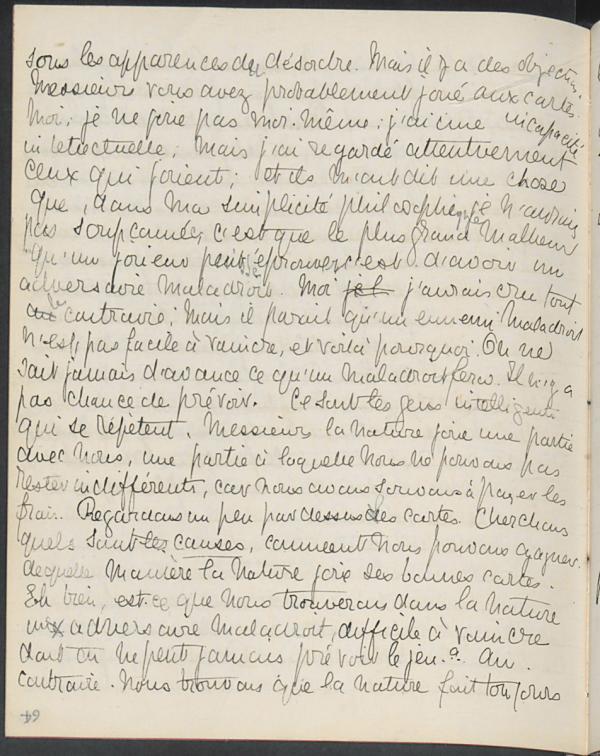 sous les apparences du désordre. Mais il y a des objections.
Messieurs vous avez probablement joué aux cartes.
Moi, je ne joue pas moi-même; j'ai une incapacité
intellectuelle; mais j'ai regardé attentivement
ceux qui jouent; et ils m'ont dit une chose
que, dans ma simplicité philosophique je n'aurais
pas soupçonnée, c'est que le plus grand malheur
qu'un joueur puisse éprouver, c'est d'avoir un
adversaire maladroit. Moi j'aurais cru tout
le contraire; mais il parait qu'un ennemi maladroit
n'est pas facile à vaincre, et voilà pourquoi. On ne
sait jamais d'avance ce qu'un maladroit fera. Il n'y a
pas chance de prévoir. Ce sont les gens intelligents
qui se répètent. Messieurs la nature joue une partie
avec nous, une partie à laquelle nous ne pouvons pas
rester indifférents, car nous avons souvent à payer les
frais. Regardons un peu par dessus les cartes. Cherchons
quels sont les causes, comment nous pouvons gagner.
de quelle manière la nature joue ses bonnes cartes.
Eh bien, est-ce que nous trouverons dans la nature
un adversaire maladroit, difficile à vaincre
dont on ne peut jamais prévoir le jeu? Au
contraire. Nous trouvons que la nature fait toujours
64